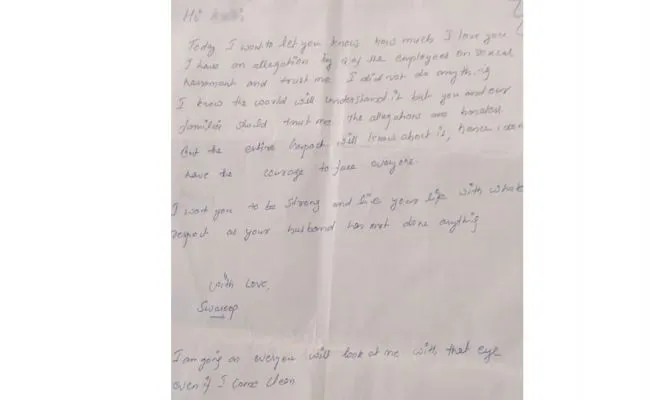 Hi
Today I want to let you know how much I love you
I have an allegation by 2 of the employees on sexual
harassment and trust me I did not do anything
I know the world will understand it but you and our
families should trust me the allegations are baseless
But the entire will know about it, hence i
have the courage to face everyone.
I want you to be strong and live your life with
respect as your husband has not done anything
With Love,
Swaroop
I am going as everyone will look at me with that eye
even if I come clean